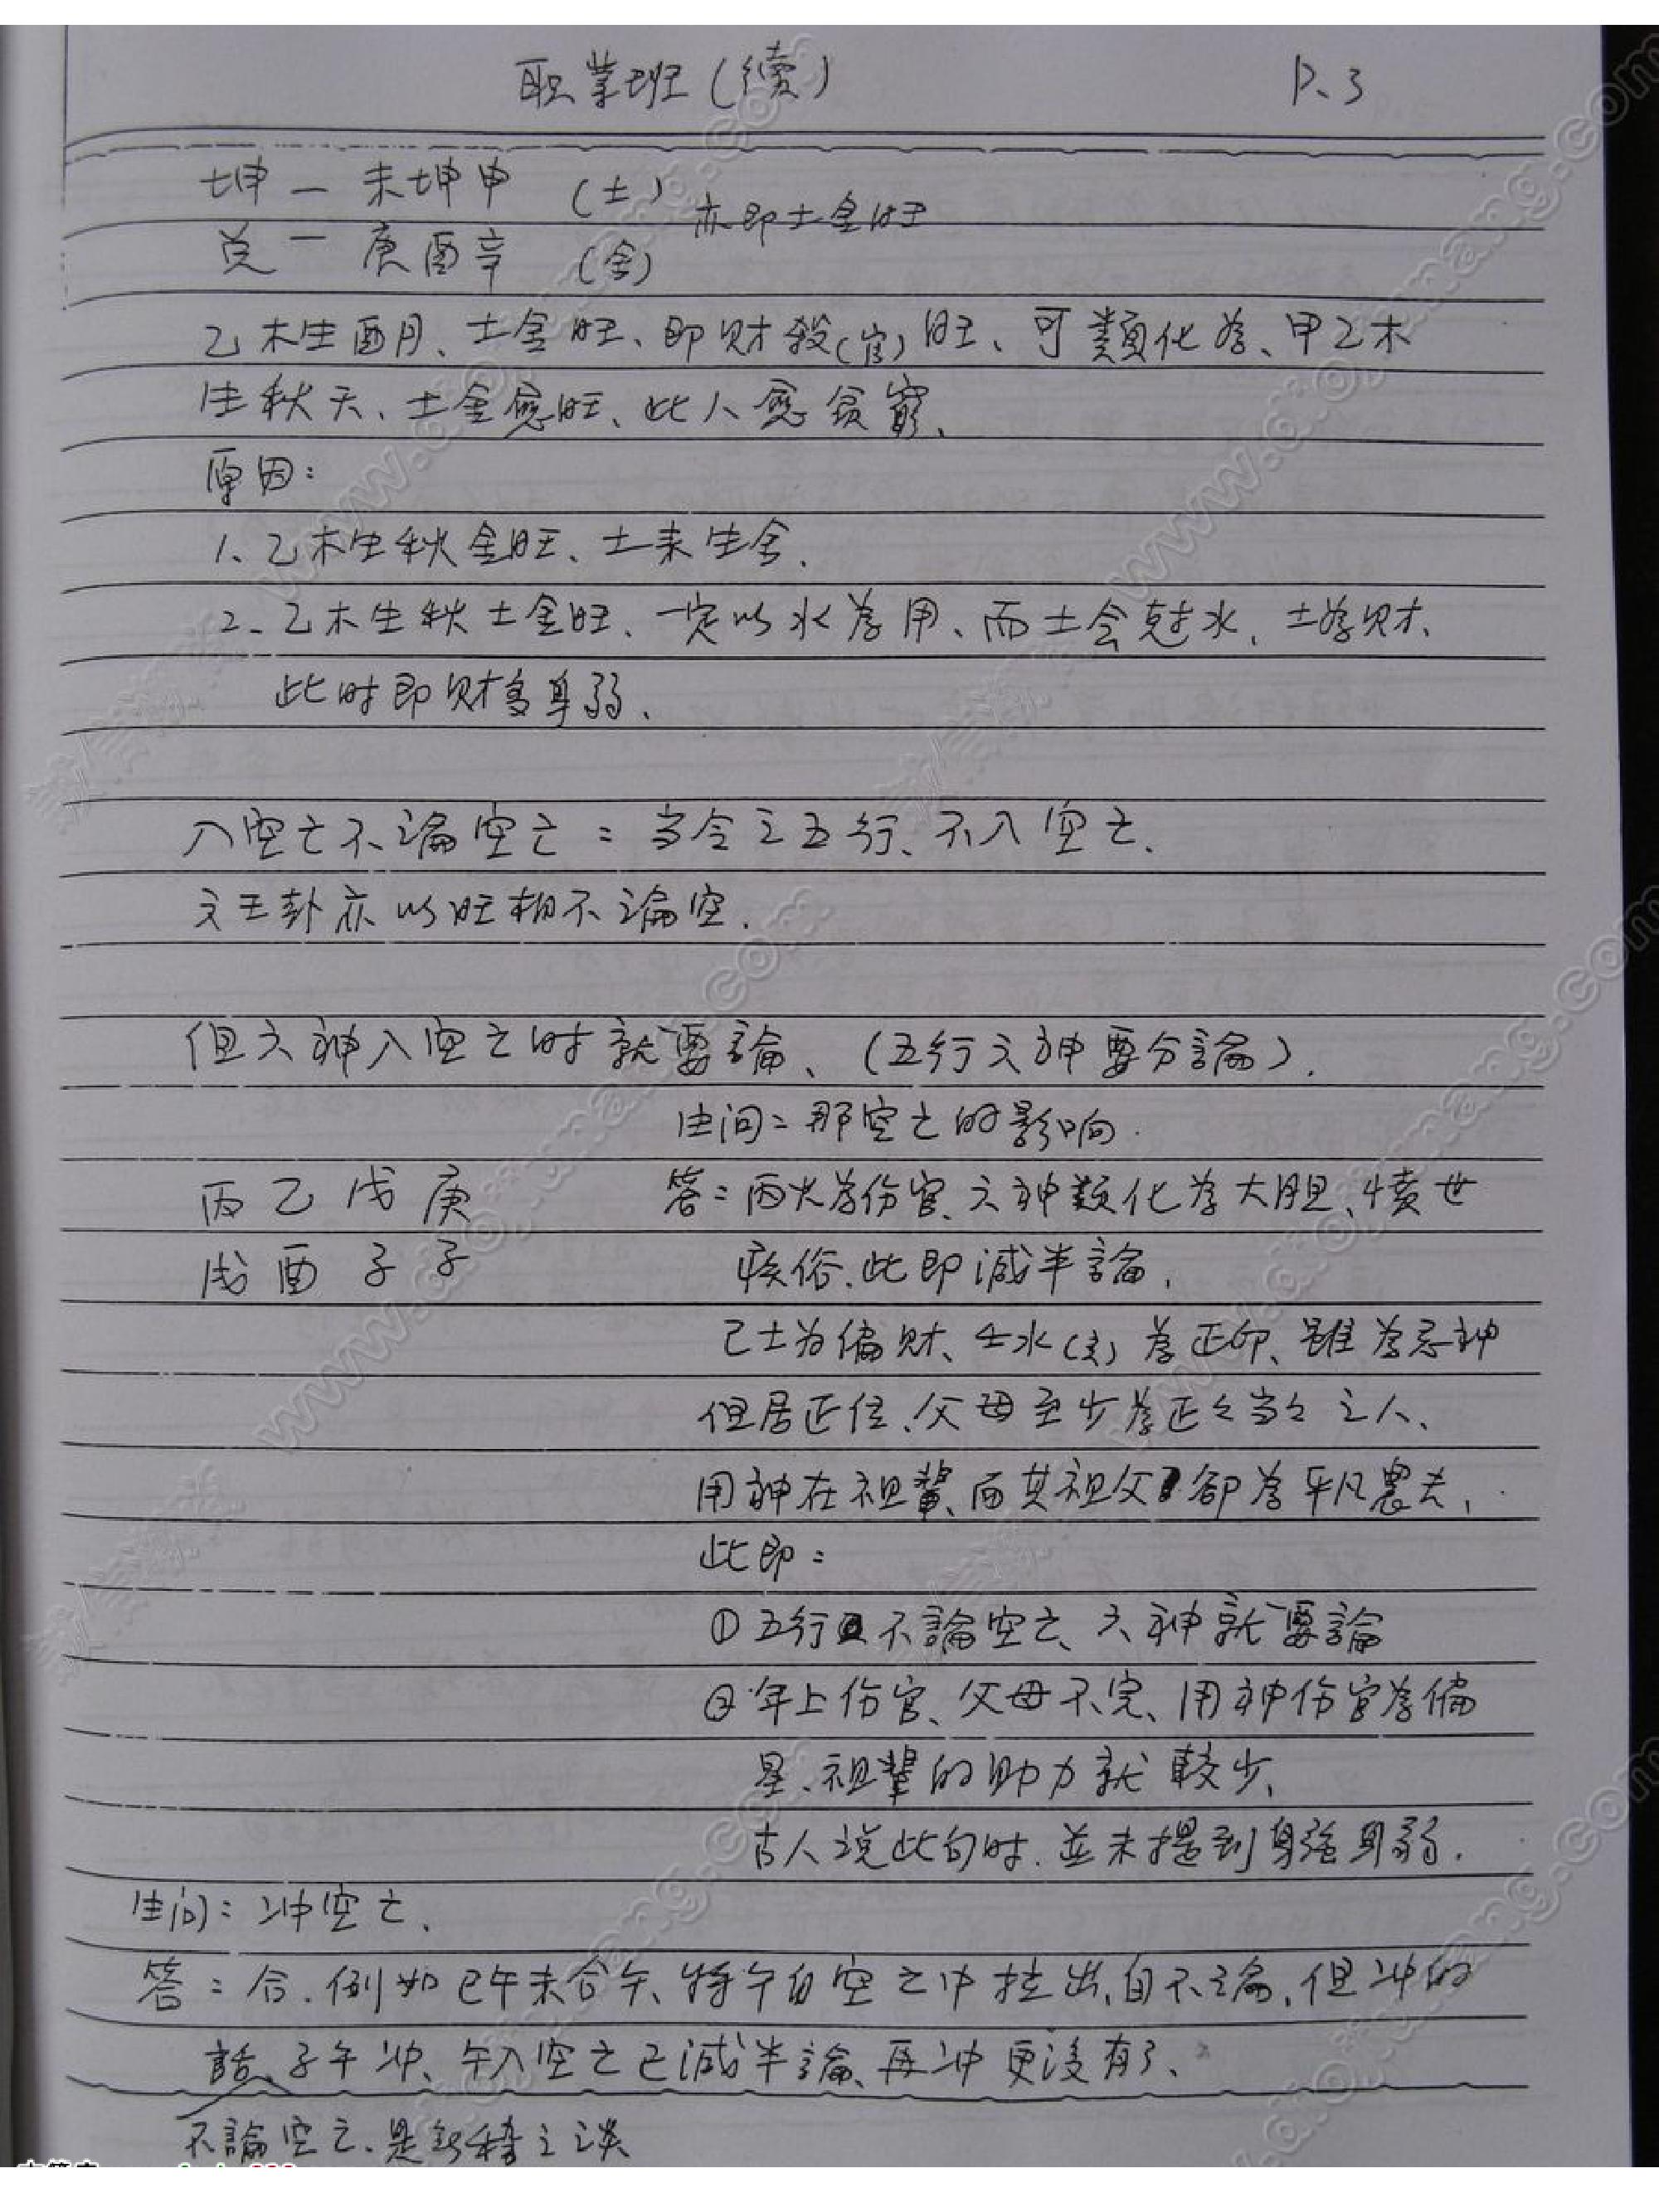 职業班(續) P.3
坤一 未坤申 (土) 亦即土金旺
兑一 庚酉辛 (金)
乙木生酉月、土金旺、即财殺(官)旺、可類化為、甲乙木
生秋天、土金愈旺、此人愈貧窮、
原因:
1、乙木生秋金旺、土来生金、
2、乙木生秋土金旺、一定以水為用、而土会尅水、土為财、
此时即财多身弱、
入空亡不論空亡:当令之五行、不入空亡、
文王卦亦以旺相不論空.
但六神入空亡时就要論、(五行六神要分論).
生问:那空亡的影响.
丙乙戊庚 答:丙火為伤官、六神類化為大胆、憤世
戌酉子子 疾俗.此即減半論、
己土为偏财、壬水(亥)為正印、雖為忌神
但居正位、父母至少為正々当々之人、
用神在祖輩、而其祖父卻為平凡農夫、
此即:
①五行不論空亡、六神就要論
②年上伤官、父母不完、用神伤官為偏
星、祖輩的助力就較少、
古人说此句时.並未提到身強身弱.
生问:冲空亡、
答:合.例如巳午未合午、将午自空亡中拉出,自不論,但冲的
話、子午冲、午入空亡已減半論、再冲更沒有了、
不論空亡、是無稽之谈